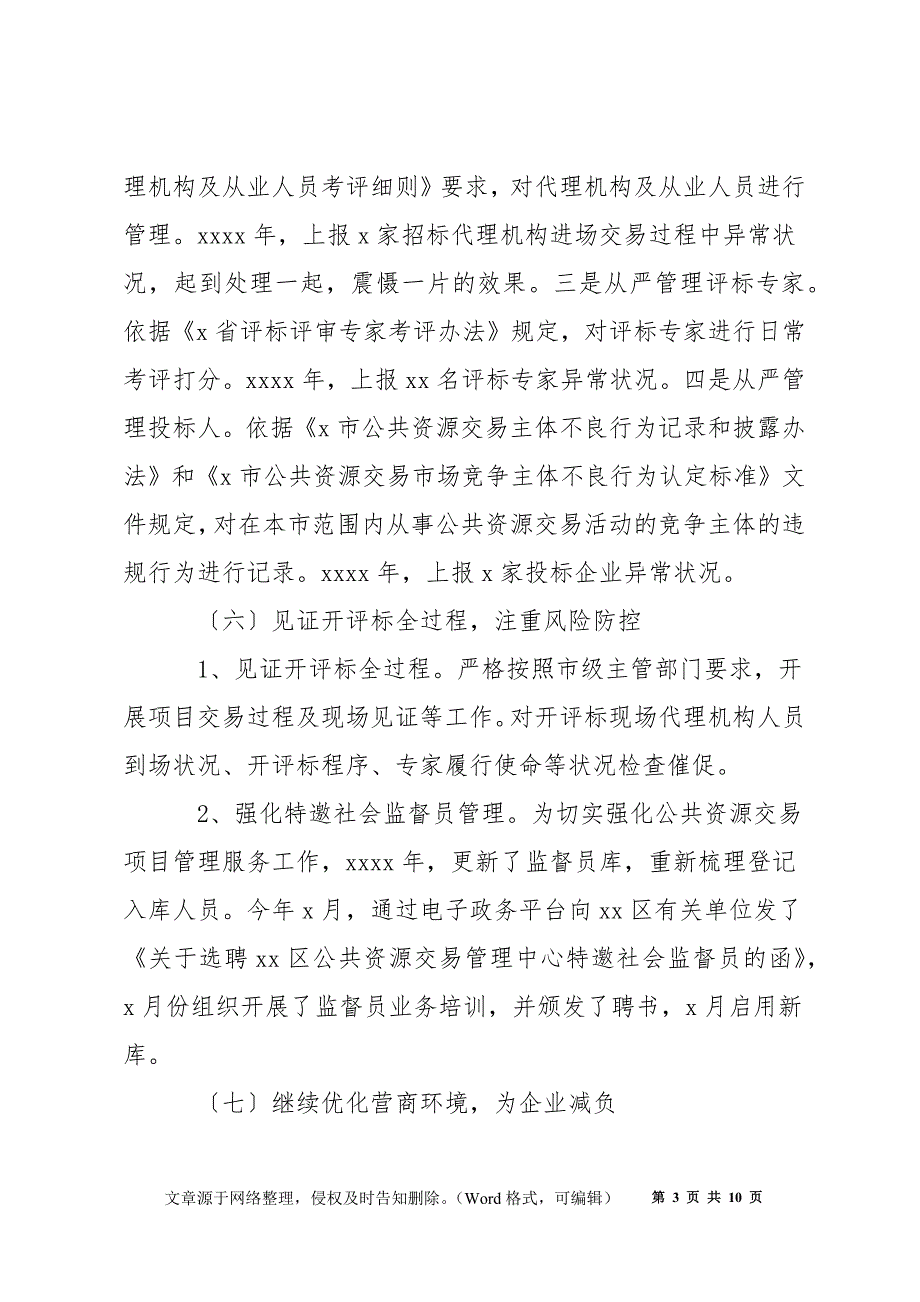 理机构及从业人员考评细则》要求，对代理机构及从业人员进行
管理。xxxx 年，上报 x 家招标代理机构进场交易过程中异常状
况，起到处理一起，震慑一片的效果。三是从严管理评标专家。
依据《x 省评标评审专家考评办法》规定，对评标专家进行日常
考评打分。xxxx 年，上报 xx 名评标专家异常状况。四是从严管
理投标人。依据《x 市公共资源交易主体不良行为记录和披露办
法》和《x 市公共资源交易市场竞争主体不良行为认定标准》文
件规定，对在本市范围内从事公共资源交易活动的竞争主体的违
规行为进行记录。xxxx 年，上报 x 家投标企业异常状况。
〔六〕见证开评标全过程，注重风险防控
1、见证开评标全过程。严格按照市级主管部门要求，开
展项目交易过程及现场见证等工作。对开评标现场代理机构人员
到场状况、开评标程序、专家履行使命等状况检查催促。
2、强化特邀社会监督员管理。为切实强化公共资源交易
项目管理服务工作，xxxx 年，更新了监督员库，重新梳理登记
入库人员。今年 x 月，通过电子政务平台向 xx 区有关单位发了
《关于选聘 xx 区公共资源交易管理中心特邀社会监督员的函》，
x 月份组织开展了监督员业务培训，并颁发了聘书，x 月启用新
库。
〔七〕继续优化营商环境，为企业减负
文章源于网络整理，侵权及时告知删除。（Word 格式，可编辑） 第 3 页 共 10 页